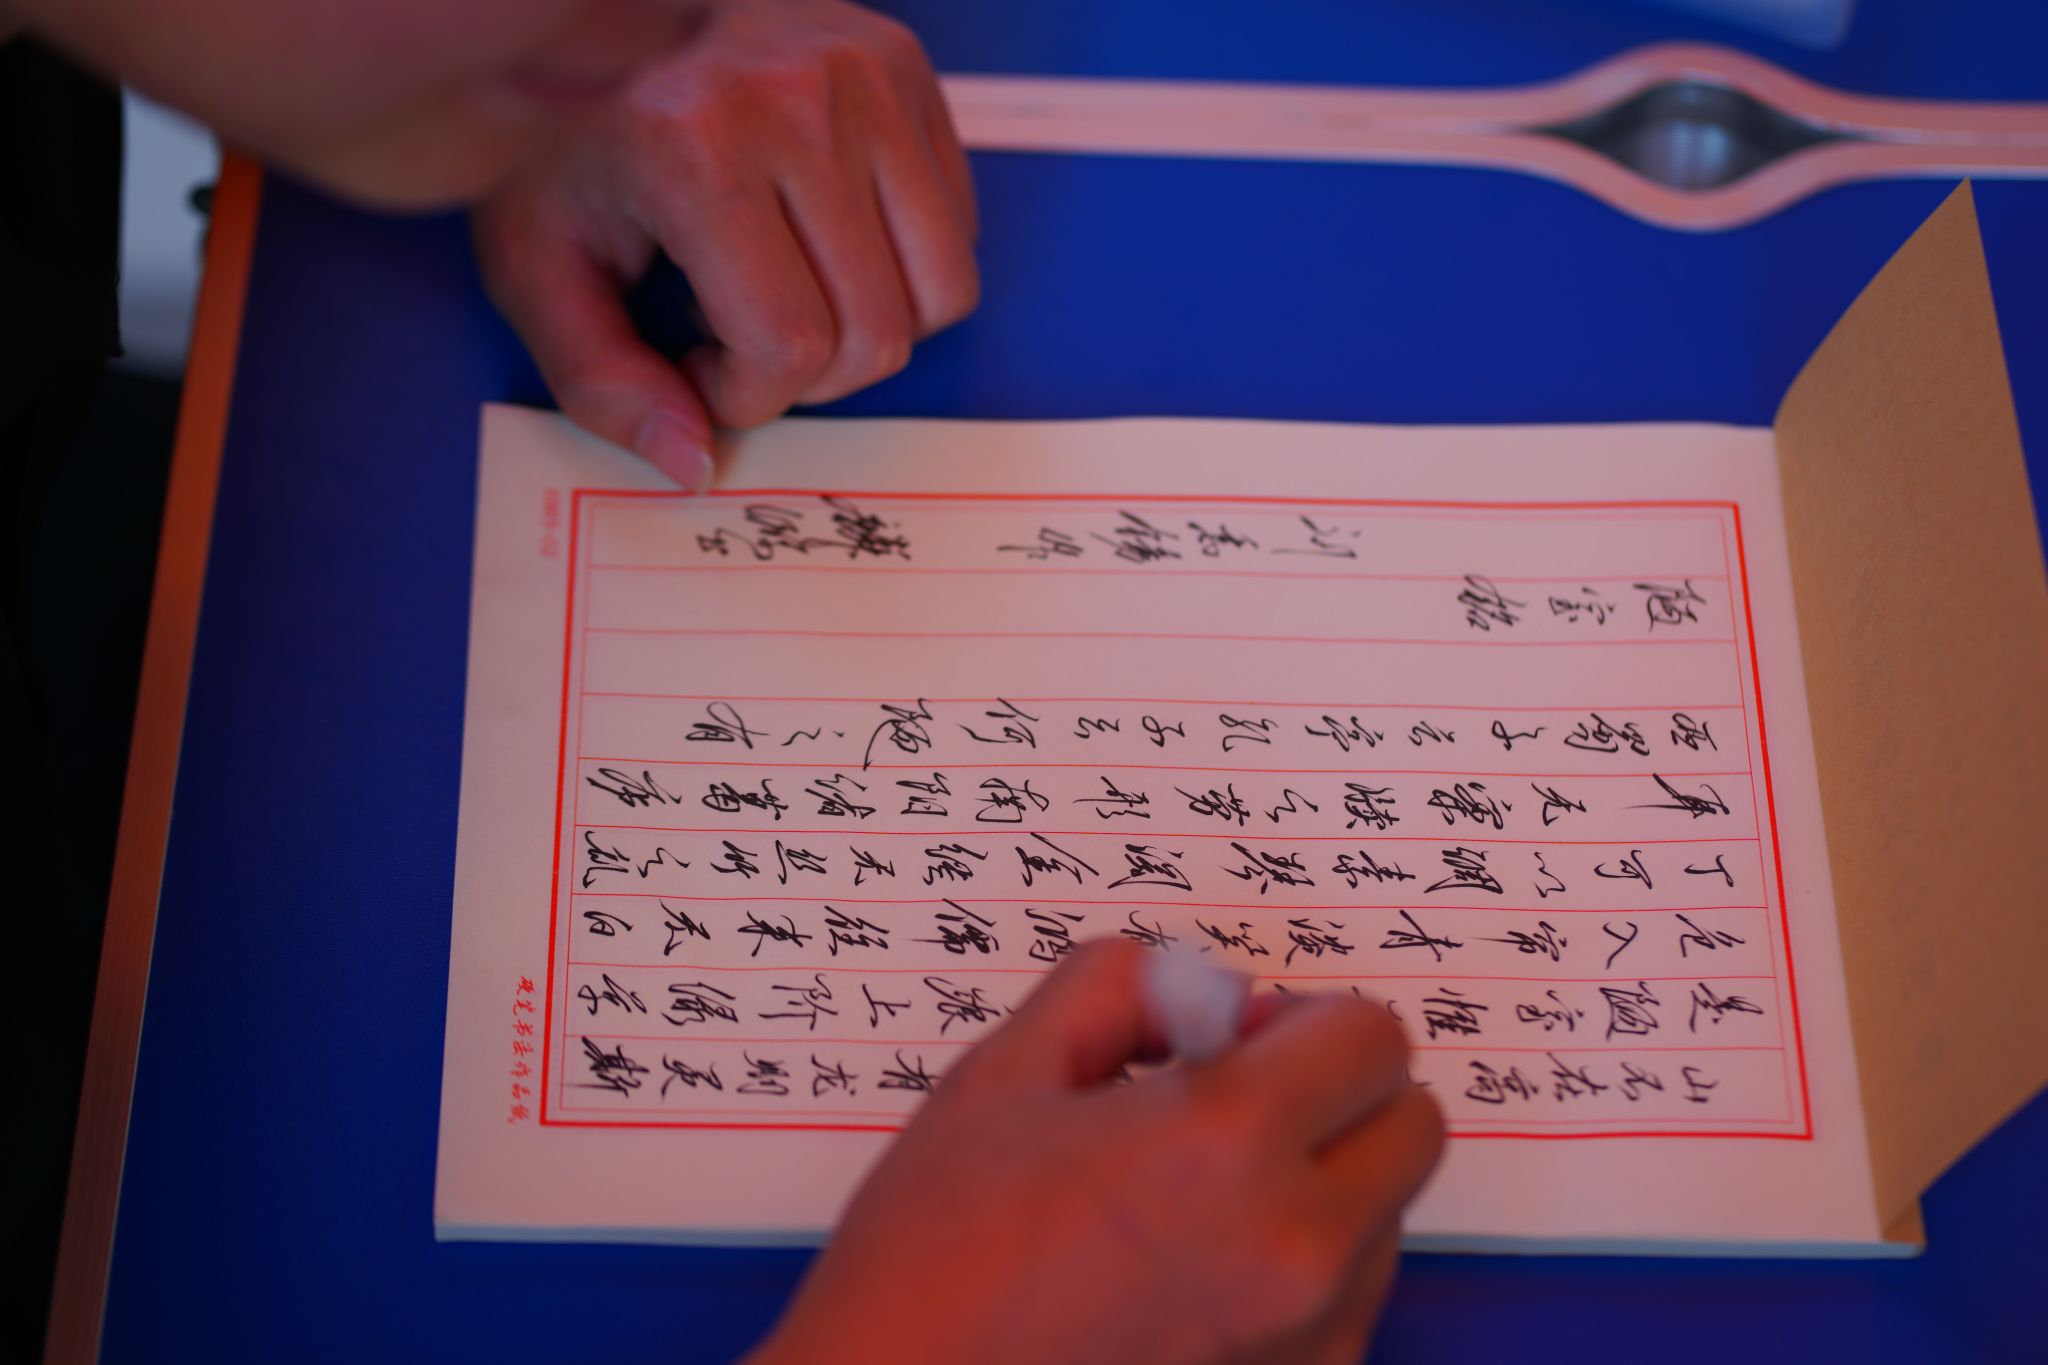 陋室铭
刘禹锡
山不在高
有龙则灵斯
是陋室惟
痕上阶绿草
色入帘青谈笑有鸿儒往来无白
丁可以调素琴阅金经无丝竹之乱
耳无案牍之劳形南阳诸葛庐
西蜀子云亭孔子云何陋之有
硬笔书法作品纸